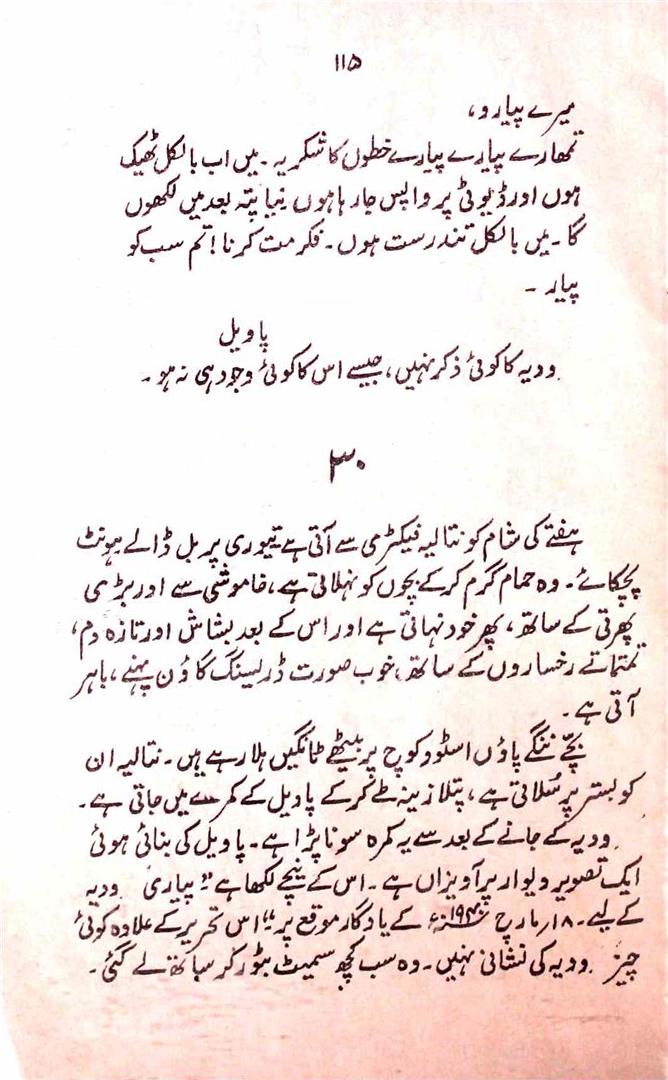 ۱۱۵
میرے پیارو،
تمھارے پیارے پیارے خطوں کا شکریہ۔ میں اب بالکل ٹھیک
ہوں اور ڈیوٹی پر واپس جارہا ہوں نیا پتہ بعد میں لکھوں
گا۔ میں بالکل تندرست ہوں۔ فکر مت کرنا! تم سب کو
پیار۔
پاویل
ودیہ کا کوئی ذکر نہیں، جیسے اس کا کوئی وجود ہی نہ ہو۔
۳۰
ہفتے کی شام کو نتالیہ فیکٹری سے آتی ہے تیوری پر بل ڈالے ہونٹ
پچکائے۔ وہ حمام گرم کرکے بچوں کو نہلاتی ہے، خاموشی سے اور بڑی
پھرتی کے ساتھ، پھر خود نہاتی ہے اور اس کے بعد بشاش اور تازہ دم،
تمتماتے رخساروں کے ساتھ، خوب صورت ڈریسنگ گاؤن پہنے، باہر
آتی ہے۔
بچے ننگے پاؤں اسٹوو کوچ پر بیٹھے ٹانگیں ہلا رہے ہیں۔ نتالیہ ان
کو بستر پر سُلاتی ہے، پتلا زینہ طے کرکے پاویل کے کمرے میں جاتی ہے۔
ودیہ کے جانے کے بعد سے یہ کمرہ سونا پڑا ہے۔ پاویل کی بنائی ہوئی
ایک تصویر دیوار پر آویزاں ہے۔ اس کے نیچے لکھا ہے "پیاری ودیہ
کے لیے۔ ۱۸؍ مارچ ۱۹۴۰ء کے یادگار موقع پر"، اس تحریر کے علاوہ کوئی
چیز ودیہ کی نشانی نہیں۔ وہ سب کچھ سمیٹ بٹور کر ساتھ لے گئی۔